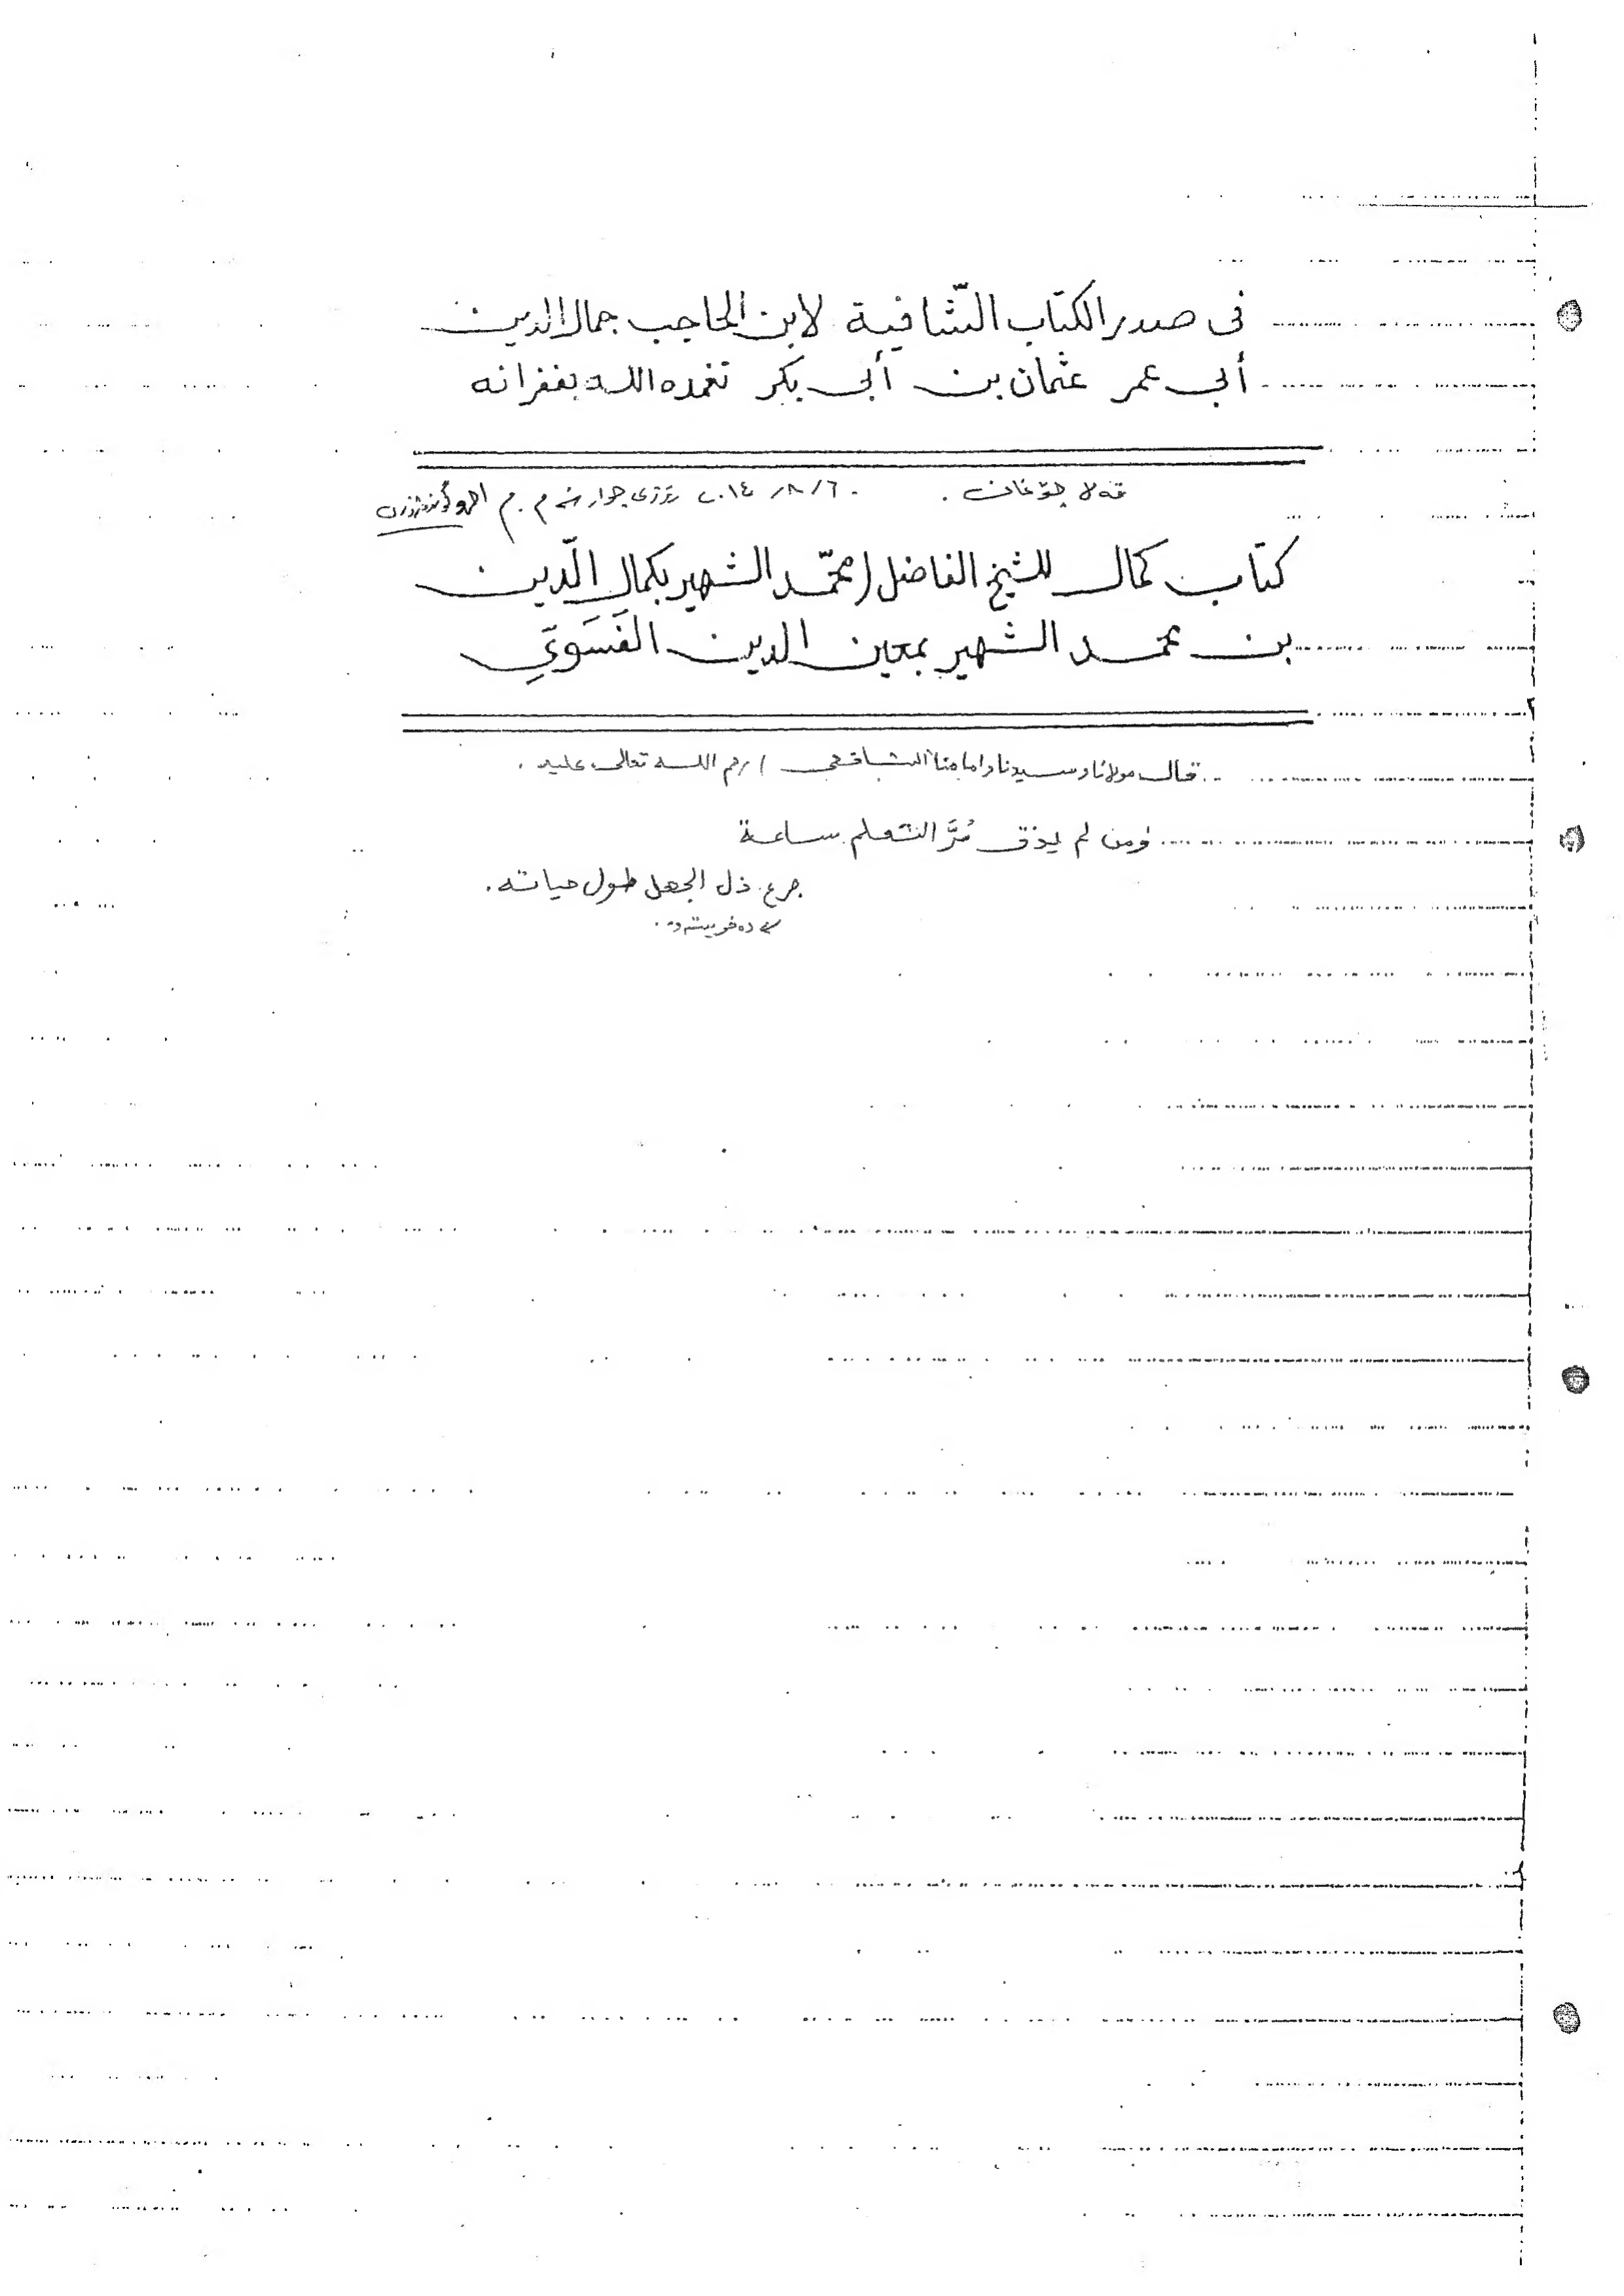 فى صدر الكتاب الشّافية لابن الحاجب جمال الدين
أبي عمر عثمان بن أبي بكر تغمده الله بغفرانه
قه لا چۆغان . ٢٠١٤/٨/٦ رۆژى چوار شه م . م
كتاب كمال للشيخ الفاضل / محمّد الشهير بكمال الّدين
بن محمد الشهير بمعين الدين الفَسَوِيِّ
قال مولانا وسيدنا وامامنا الشافعى / رحم الله تعالى عليه .
ومن لم يذق مُرَّ التعلم ساعة
جرع ذل الجهل طول حياته .